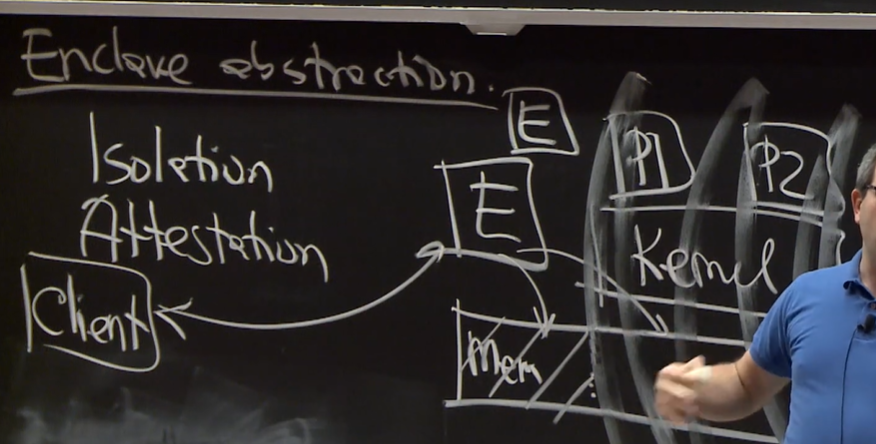 Enclave abstraction.
Isolation
Attestation
Client
E
E
P1
P2
Kernel
Mem